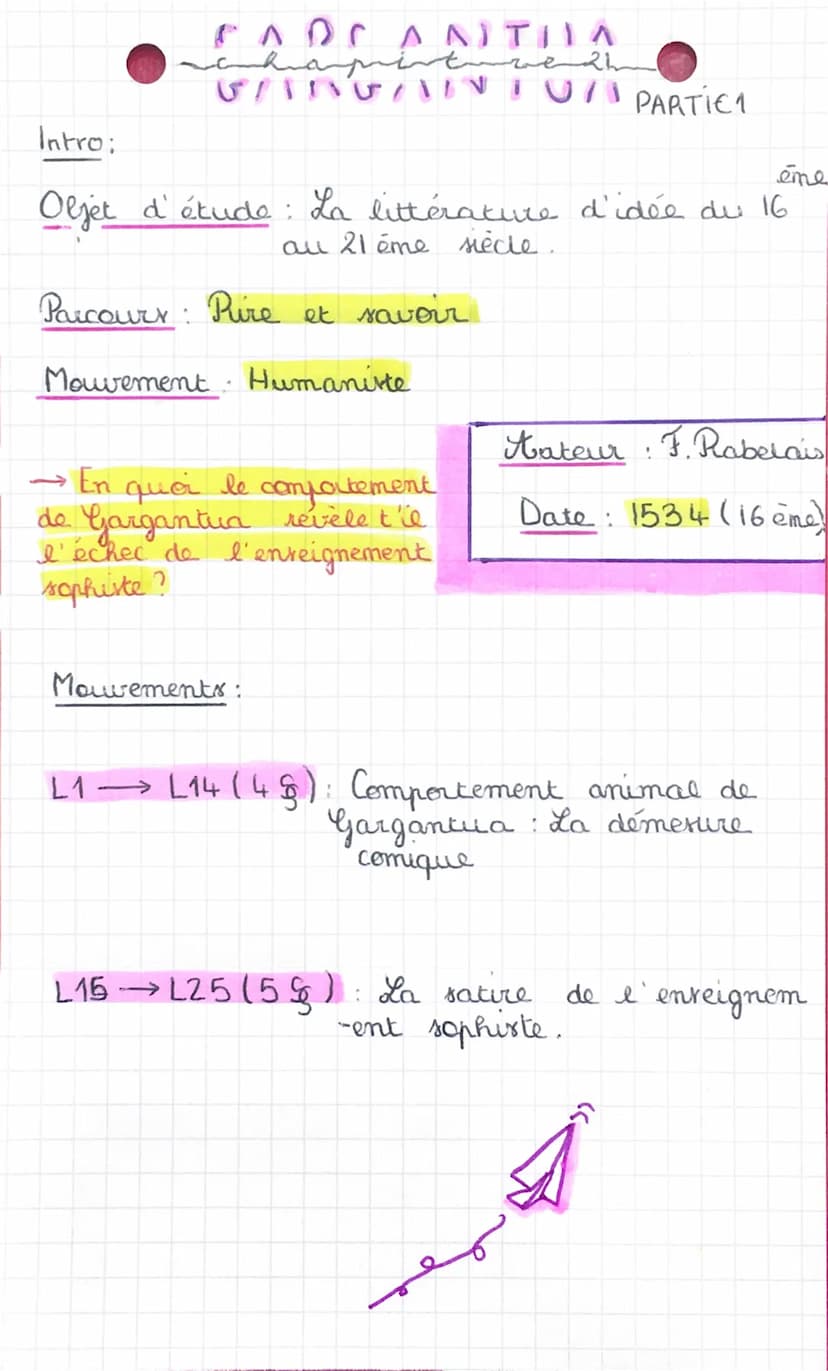 GARGANTUA
chapitre 21
PARTIE 1
Intro :
Objet d'étude : La littérature d'idée du 16 ème
au 21 ème siècle.
Parcours : Rire et savoir
Mouvement : Humaniste
Auteur : F. Rabelais
Date : 1534 (16 ème)
→ En quoi le comportement
de Gargantua révèle t'il
l'échec de l'enseignement
sophiste ?
Mouvements :
L1 → L14 (4 §) : Comportement animal de
Gargantua : La démesure
comique
L15 → L25 (5 §) : La satire de l'enseignem
-ent sophiste.